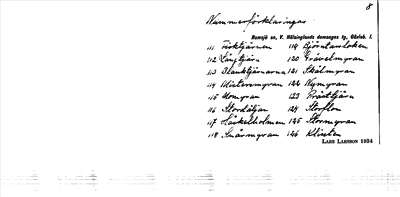 8
Nummerförklaringar
Ramsjö sn, V. Hälsinglands domsagas tg, Gävleb. l.
111 Fisktjärnen 119 Björntansloken
112 Långtjärn 120 Grävelmyran
113 Blanktjärnarna 121 Skålmyran
114 Mistersmyran 122 Nymyran
115 Momyran 123 Prästtjärn
116 Stordåljan 124 Storflon
117 Häckelholmen 125 Stormyran
118 Snårmyran 126 Klinten
LARS LARSSON 1934